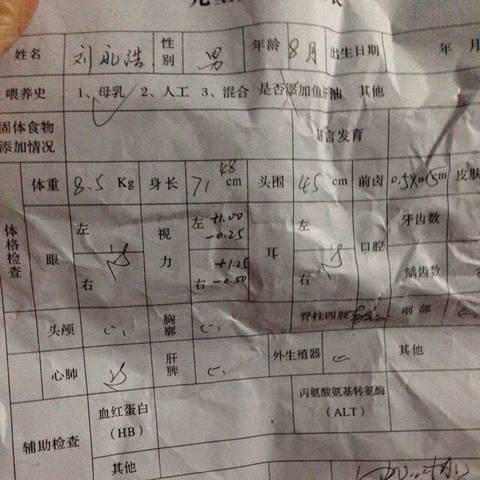 姓名 刘永浩 性别 男 年龄 8月 出生日期 年 月
喂养史 1、母乳 2、人工 3、混合 是否添加鱼肝油 其他
固体食物添加情况 语言发育
体格检查
体重 8.5 Kg 身长 71.48 cm 头围 45 cm 前卤 0.5X0.5m 皮肤
眼 左 右 视力 左 +1.00 -0.25 右 +1.25 -0.50 耳 左 右 口腔 牙齿数
龋齿数
头颅 胸廓 脊柱四肢 阴部
心肺 肝脾 外生殖器 其他
辅助检查 血红蛋白（HB） 丙氨酸氨基转氨酶（ALT）
其他